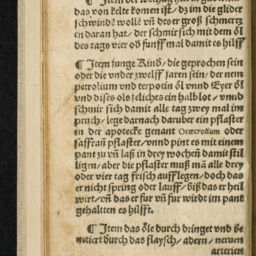 das von kelte komen ist / dz im die glider
schwindē wollē vñ des er groß schmertzē
in daran hat / der schmir sich mit dem ôl
des tags vier ob funff mal damit es hilfft
¶ Item junge Kind / die geprochen sein
oder die vnder zwelff jaren sein / der nem
petrolium vnd terpotin ôl vnnd Eyer ôl
vnd dises ôls jetliches ein halb lot / vnnd
schmir sich damit alle tag zwey mal im
pruch / lege darnach daruber ein pflaster
in der apotecke genant Oxecrotium oder
saffran pflaster / vnnd pint es mit einem
pant zu vñ laß in drey wochen damit stil
ligen / aber die pflaster muß mã alle drey
oder vier tag frisch aufflegen / doch das
er nicht spring oder lauff / biß das er heil
wirt / vñ das er fur vñ fur wirdt im pant
gehalten es hilfft.
¶ Item das ôle durch dringet vnd be
netiert durch das flaysch / adern / neruen
arterien